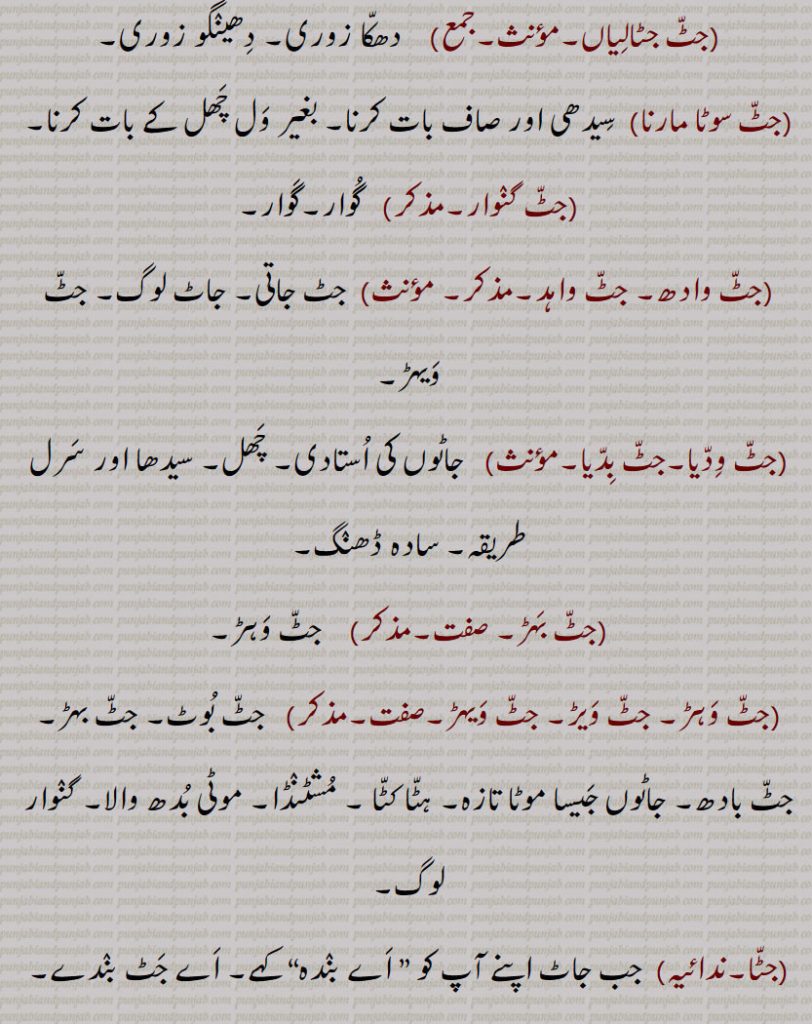 (جٹّ جٹالِیاں۔مؤنث۔جمع) دھکّا زوری۔ دِھینْگو زوری۔
(جٹّ سوٹا مارنا) سِیدھی اور صاف بات کرنا۔ بغیر وَل چَھل کے بات کرنا۔
(جٹّ گنْوار۔مذکر) گُوار۔گَوار۔
(جٹّ وادھ۔ جٹّ واہد۔مذکر۔ مؤنث) جٹ جاتی۔ جاٹ لوگ۔ جٹّ
وَیہڑ۔
(جٹّ وِدّیا۔جٹّ بِدّیا۔مؤنث) جاٹوں کی اُستادی۔ چَھل۔ سیدھا اور سَرل
طریقہ۔ سادہ ڈھنْگ۔
(جٹّ بَہڑ۔ صفت۔مذکر) جٹّ وَہڑ۔
(جٹّ وَہڑ۔ جٹّ وَیڑ۔ جٹّ وَیہڑ۔صفت۔مذکر) جٹّ بُوٹ۔ جٹّ بہڑ۔
جٹّ بادھ۔ جاٹوں جَیسا موٹا تازہ۔ ہٹّا کٹّا ۔ مُشْٹنْڈا۔ موٹی بُدھ والا۔ گنْوار
لوگ۔
(جٹّا۔ندائیہ) جب جاٹ اپنے آپ کو ” اَے بنْدہ“ کہے۔ اَے جَٹ بنْدے۔